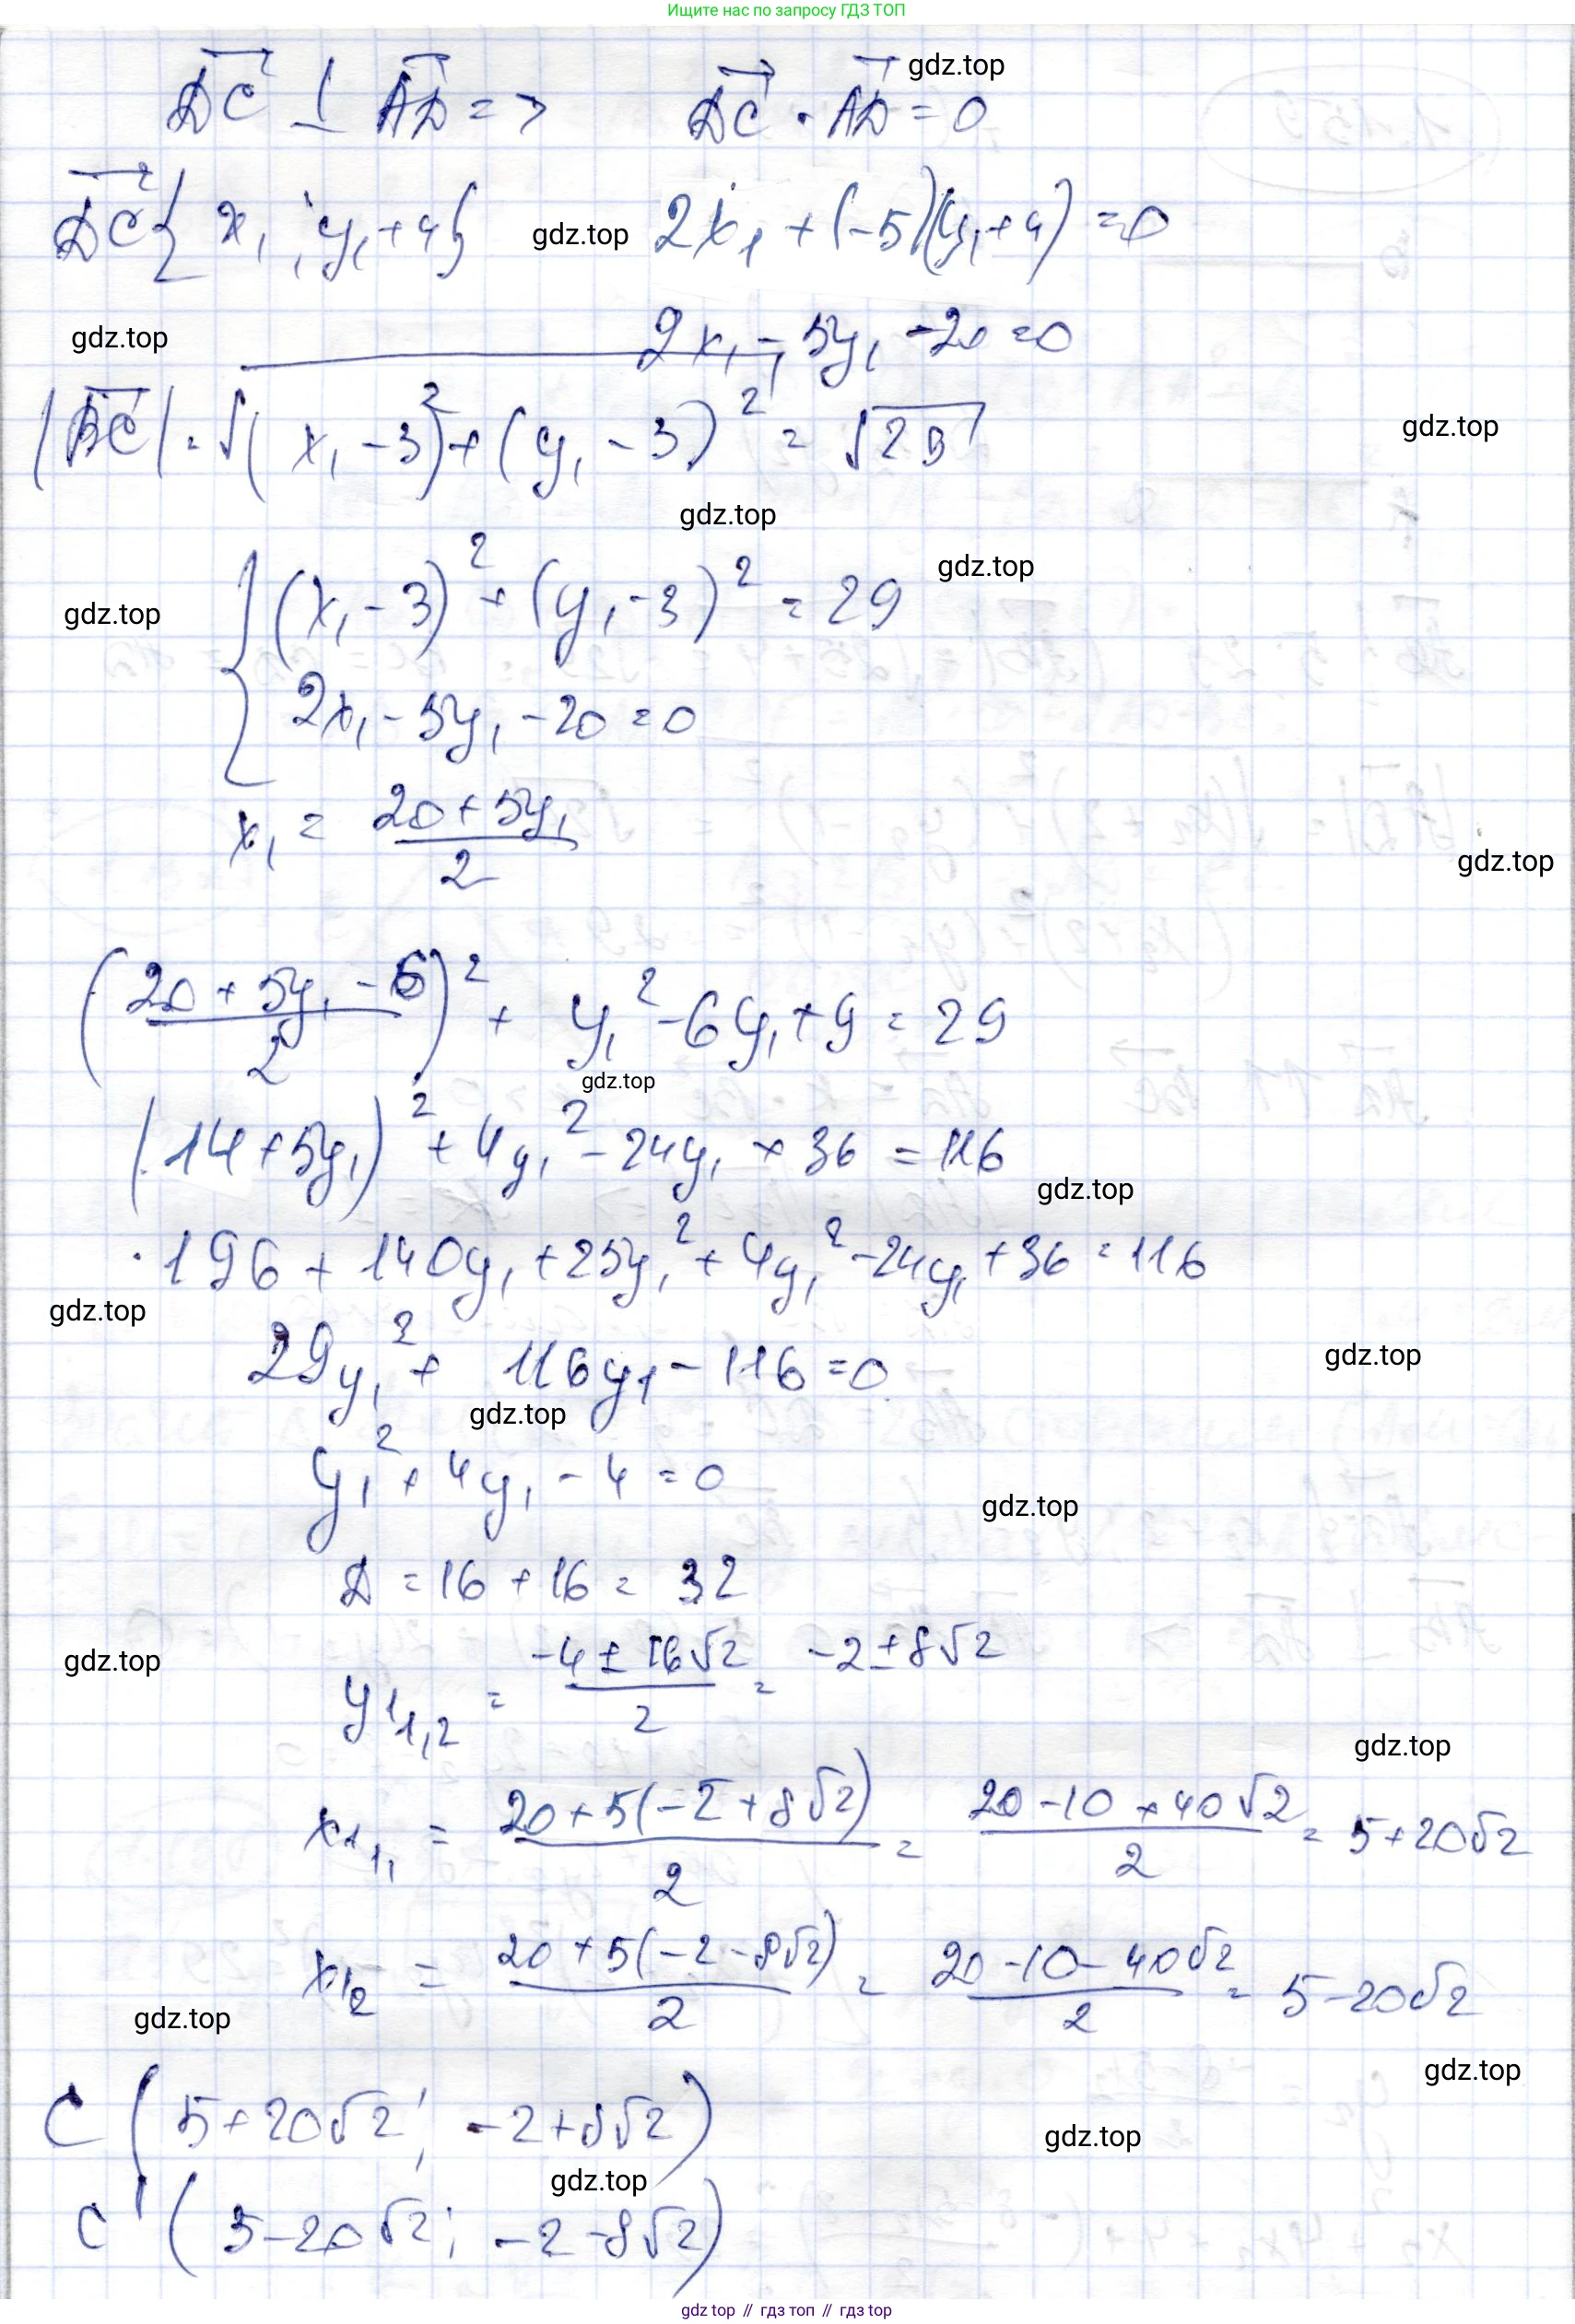 Ищите нас по запросу ГДЗ ТОП
DC ⊥ AD => DC · AD = 0
gdz.top
DC { x₁ ; y₁+4 } gdz.top 2x₁ + (-5)(y₁+4) = 0
gdz.top 2x₁ - 5y₁ - 20 = 0
|BC| = √((x₁-3)² + (y₁-3)²) = √29
gdz.top
gdz.top
{ (x₁-3)² + (y₁-3)² = 29
gdz.top
gdz.top
2x₁ - 5y₁ - 20 = 0
x₁ = (20+5y₁)/2
gdz.top
((20+5y₁-6)/2)² + y₁² - 6y₁ + 9 = 29
gdz.top
(14+5y₁)² + 4y₁² - 24y₁ + 36 = 116
gdz.top
196 + 140y₁ + 25y₁² + 4y₁² - 24y₁ + 36 = 116
gdz.top
29y₁² + 116y₁ - 116 = 0
gdz.top
gdz.top
y₁² + 4y₁ - 4 = 0
gdz.top
D = 16 + 16 = 32
y₁₁,₂ = (-4 ± 16√2)/2 = -2 ± 8√2
gdz.top
gdz.top
x₁₁ = (20+5(-2+8√2))/2 = (20-10+40√2)/2 = 5+20√2
x₁₂ = (20+5(-2-8√2))/2 = (20-10-40√2)/2 = 5-20√2
gdz.top
gdz.top
C (5+20√2; -2+8√2)
gdz.top
gdz.top
C' (5-20√2; -2-8√2)
gdz top // гдз топ // gdz top